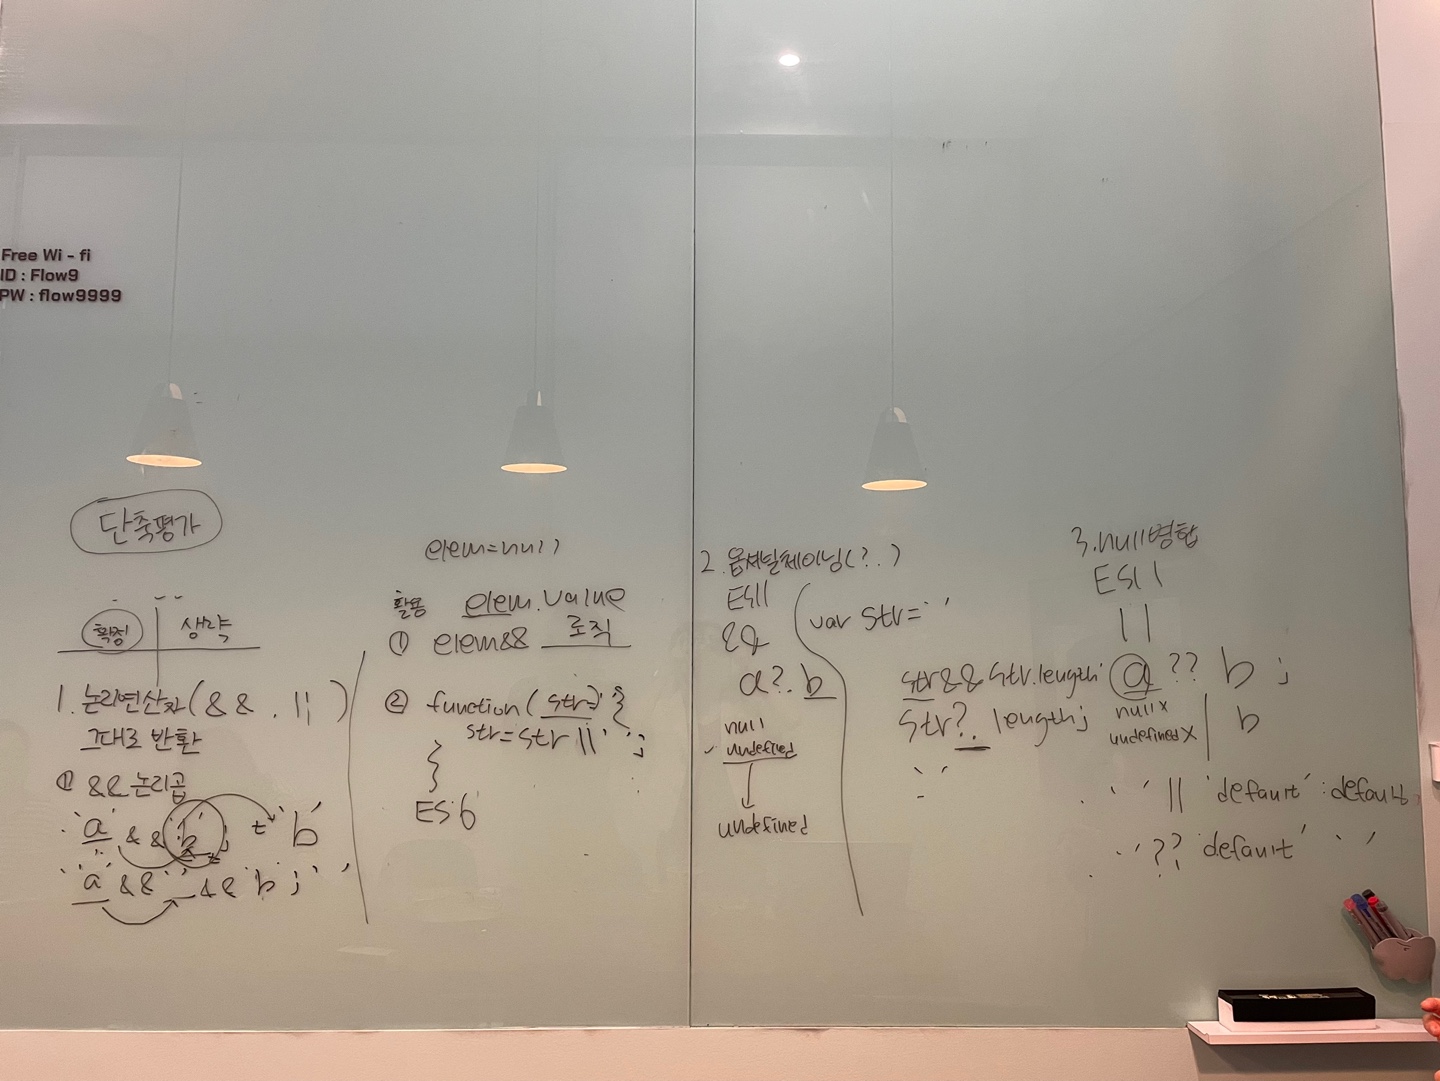 Free Wi - fi
ID : Flow9
PW : flow9999
단축평가
확정 생략
1. 논리연산자(&& , ||)
그대로 반환
① && 논리곱
'a' && 'b'; t 'b'
'a' && '' && 'b'; ''
elem=null
활용 elem.value
① elem&& 로직
② function( str='' {
str=str || '';
}
ES6
2. 옵셔널체이닝(?.)
ES11
&&
a?.b
null
undefined
undefined
var str=''
str&&str.length;
str?.length;
''
3. null병합
ES11
||
a ?? b ;
null x
undefined X
b
'' || 'default' : default
'' ?? 'default' ''